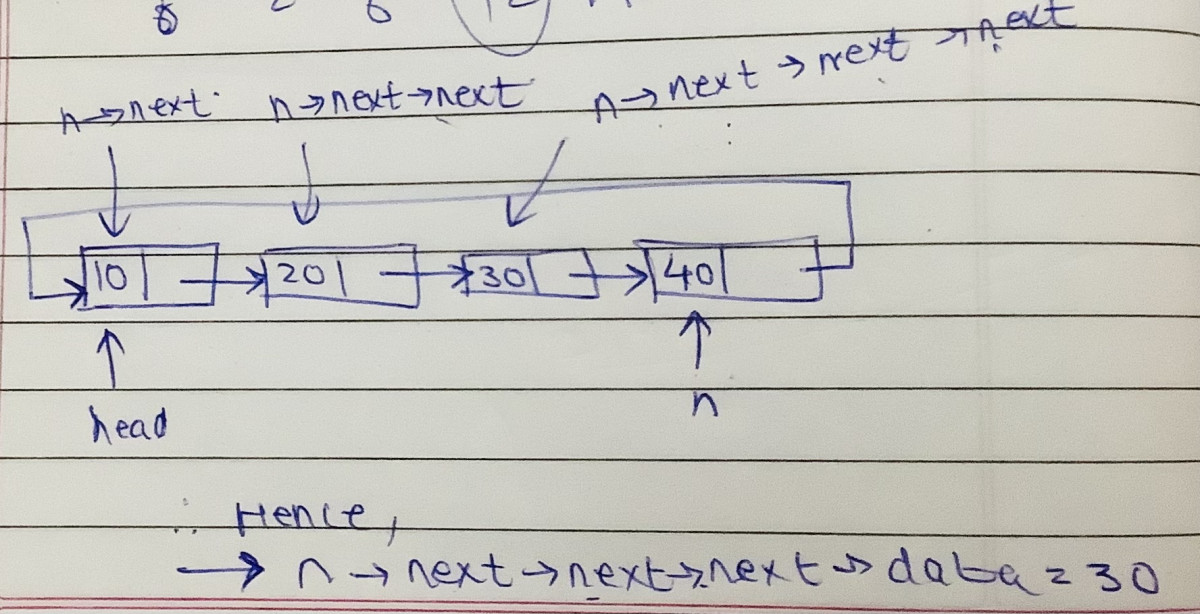 n→next n→next→next n→next→next→next
10 20 30 40
head n
∴ Hence,
→ n→next→next→next→data = 30